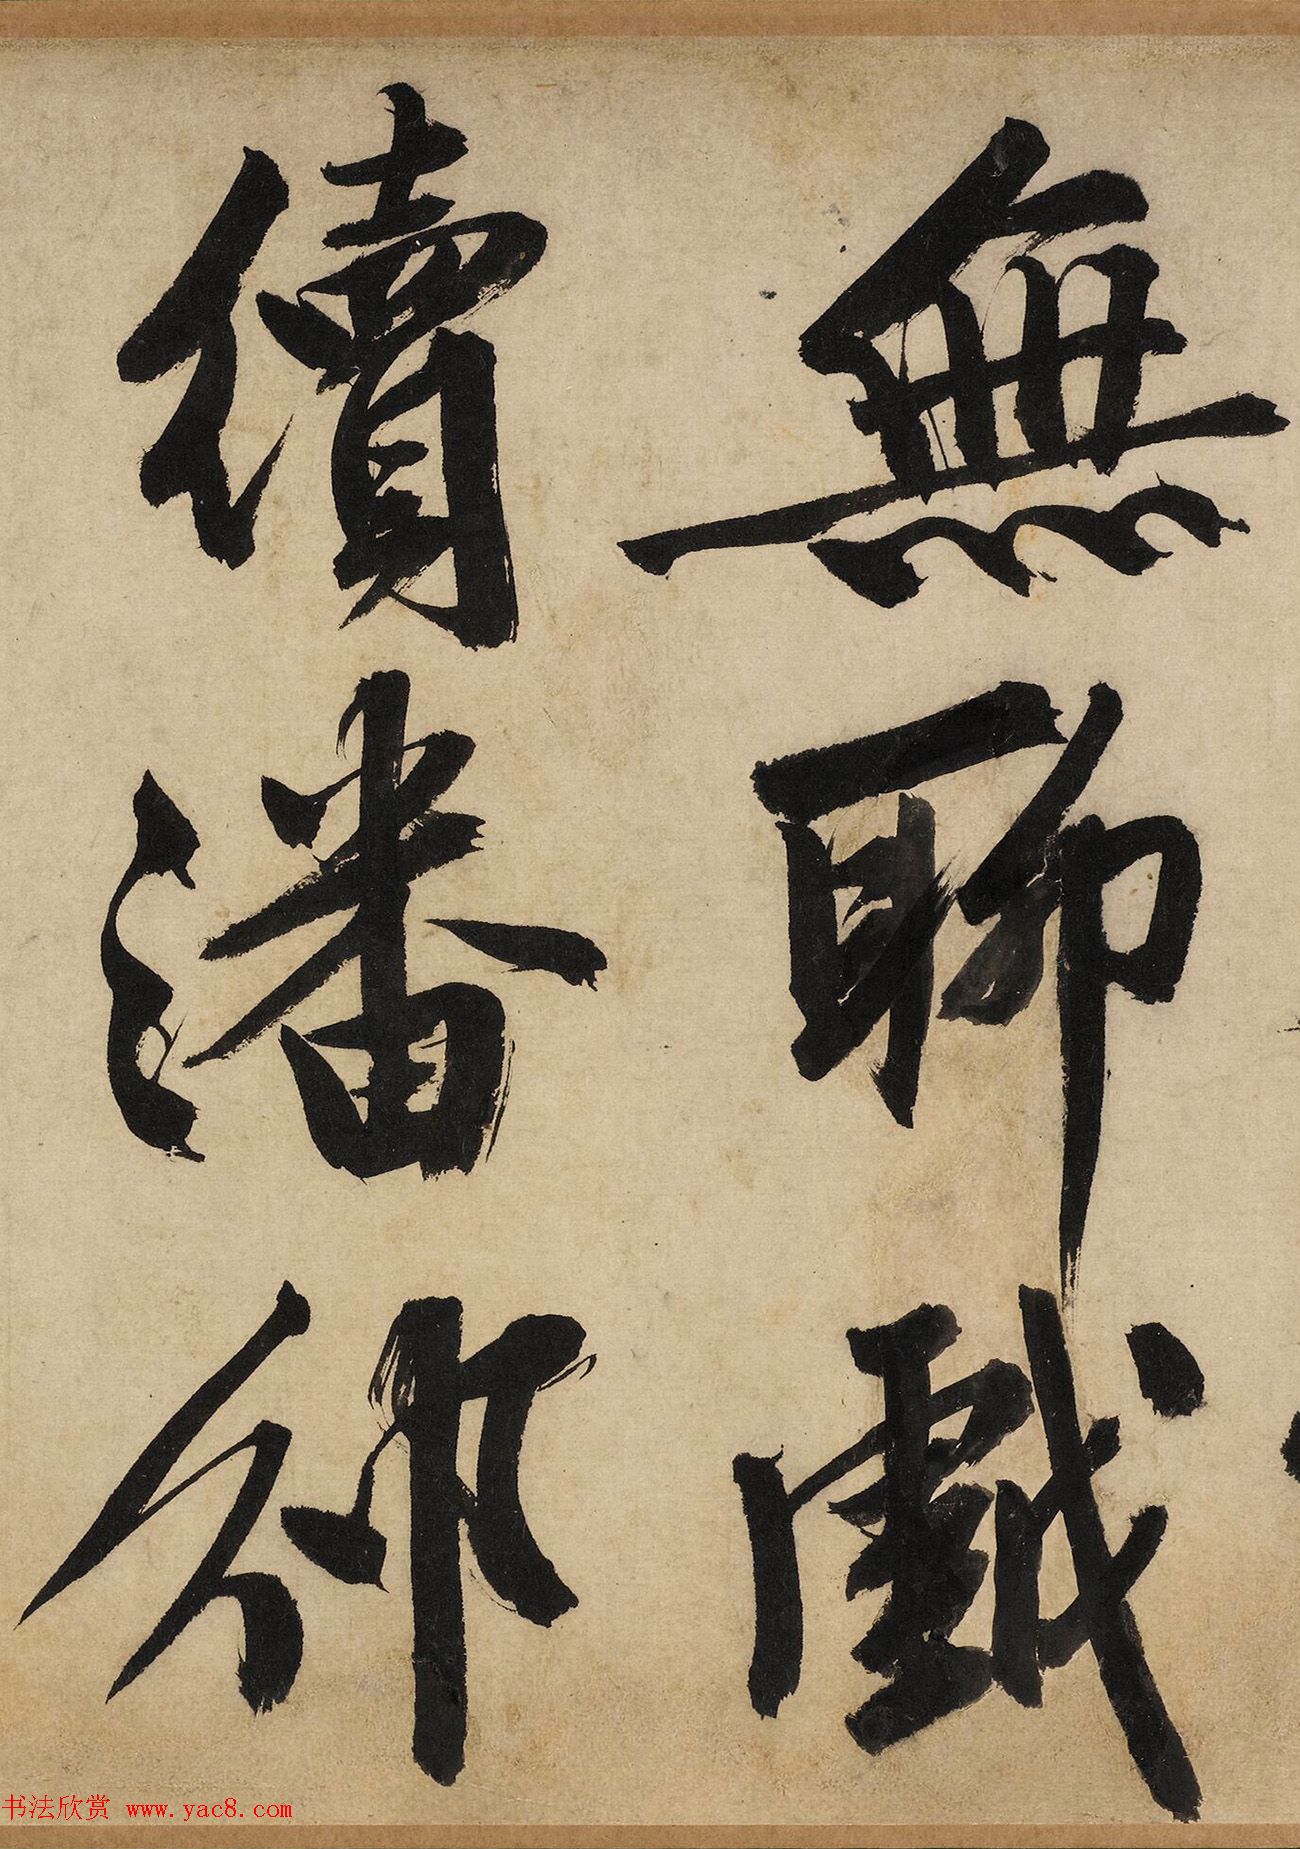 無聊戲
續潘邠
书法欣赏 www.yac8.com